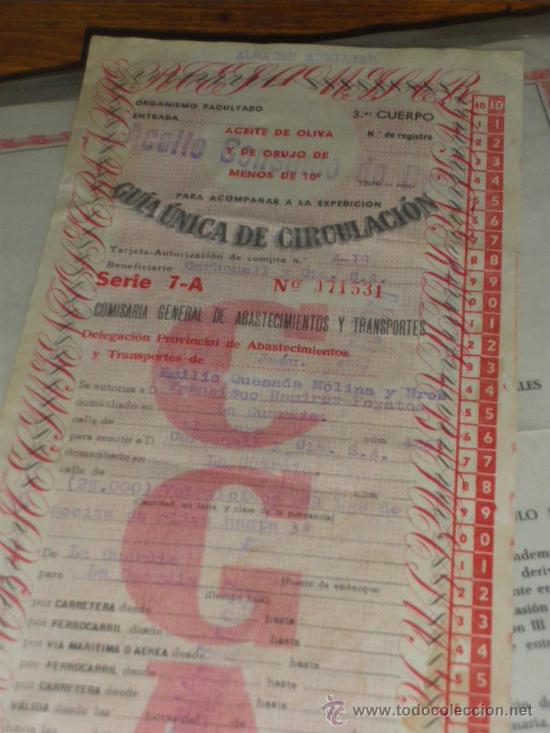 ORGANISMO FACULTADO
ENTRADA
3.er CUERPO
N.º de registro
Aceite
ACEITE DE OLIVA
Y DE ORUJO DE
MENOS DE 10º
PARA ACOMPAÑAR A LA EXPEDICION
GUÍA ÚNICA DE CIRCULACIÓN
Tarjeta-Autorización de compra n.º A-10
Beneficiario Carbonell y Cia. S.A.
Serie 7-A Nº 171531
COMISARIA GENERAL DE ABASTECIMIENTOS Y TRANSPORTES
Delegación Provincial de Abastecimientos
y Transportes de Jaén.
Emilio Quesada Molina y Hnos
Se autoriza a D. Francisco Ramirez Poyatos
domiciliado en La Guardia.
calle de núm
para remitir a D. Carbonell y Cia. S.A.
domiciliado en La Guardia.
calle de núm
(25.000) Kgs de
(Cantidad, en letra, y clase de la mercancía)
aceite de oliva hasta 3º
De La Guardia
(Punto de embarque)
para La Guardia
(Destino final)
por CARRETERA desde hasta
por FERROCARRIL desde hasta
por VIA MARITIMA O AEREA desde hasta
por FERROCARRIL desde hasta
por CARRETERA desde hasta
VÁLIDA desde las horas del de
C
G
10 10
1 1
2 2
3 3
4 4
5 5
6 6
7 7
8 8
9 9
0 0
1 1
2 2
3 3
4 4
5 5
6 6
7 7
8 8
9 9
0 0
1 1
2 2
3 3
4 4
5 5
ALES
ULO
adem
deriv
ente en
asión
on III
e entr
todocoleccion.net